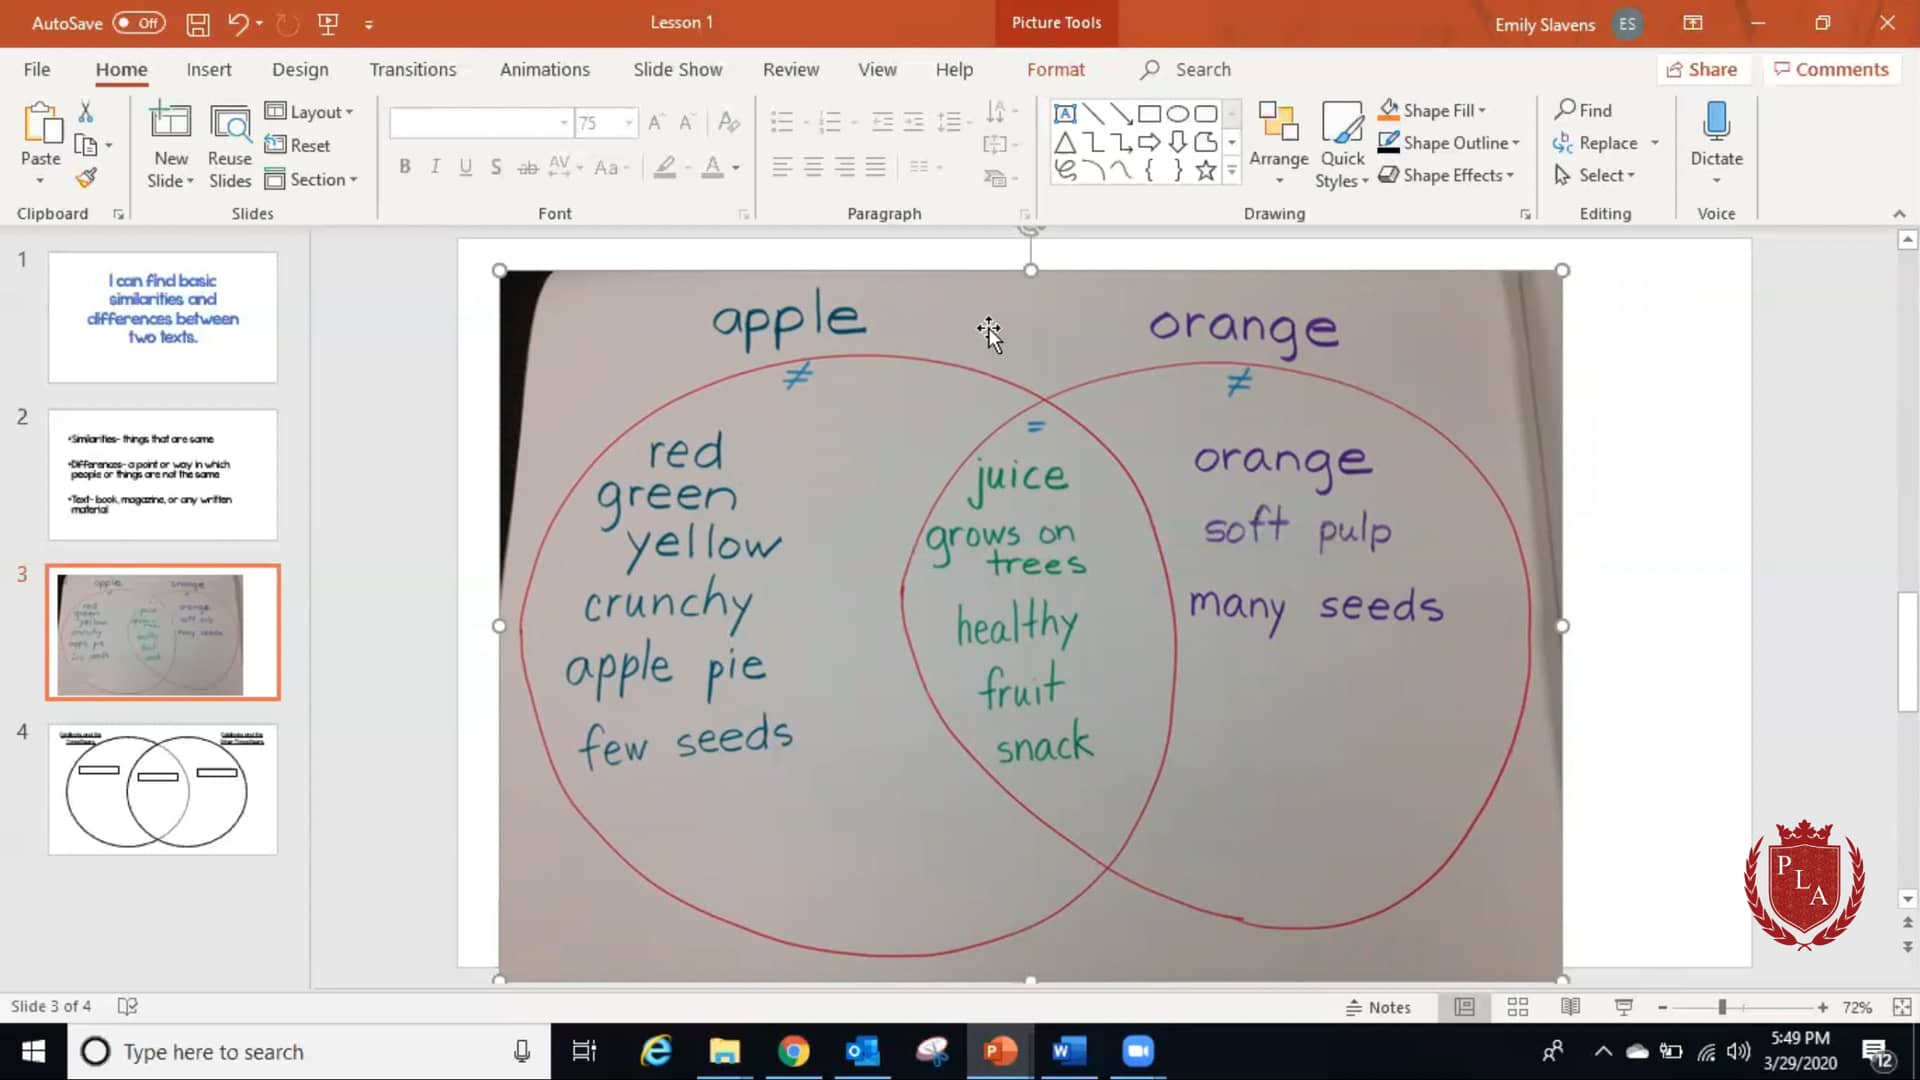 AutoSave Off
Lesson 1
Picture Tools
Emily Slavens ES
File Home Insert Design Transitions Animations Slide Show Review View Help Format Search
Share Comments
Paste
New Slide
Reuse Slides
Layout
Reset
Section
75
B I U S ab AV Aa
A
Arrange
Quick Styles
Shape Fill
Shape Outline
Shape Effects
Find
Replace
Select
Dictate
Clipboard Slides Font Paragraph Drawing Editing Voice
1
I can find basic
similarities and
differences between
two texts.
2
•Similarities- things that are same
•Differences- a point or way in which
people or things are not the same
•Text- book, magazine, or any written
material
3
apple orange
red
green
yellow
crunchy
apple pie
few seeds
juice
healthy
fruit
snack
orange
soft pulp
many seeds
4
apple
orange
≠
≠
=
red
green
yellow
crunchy
apple pie
few seeds
juice
grows on
trees
healthy
fruit
snack
orange
soft pulp
many seeds
PLA
Slide 3 of 4
Notes
72%
Type here to search
5:49 PM
3/29/2020
12